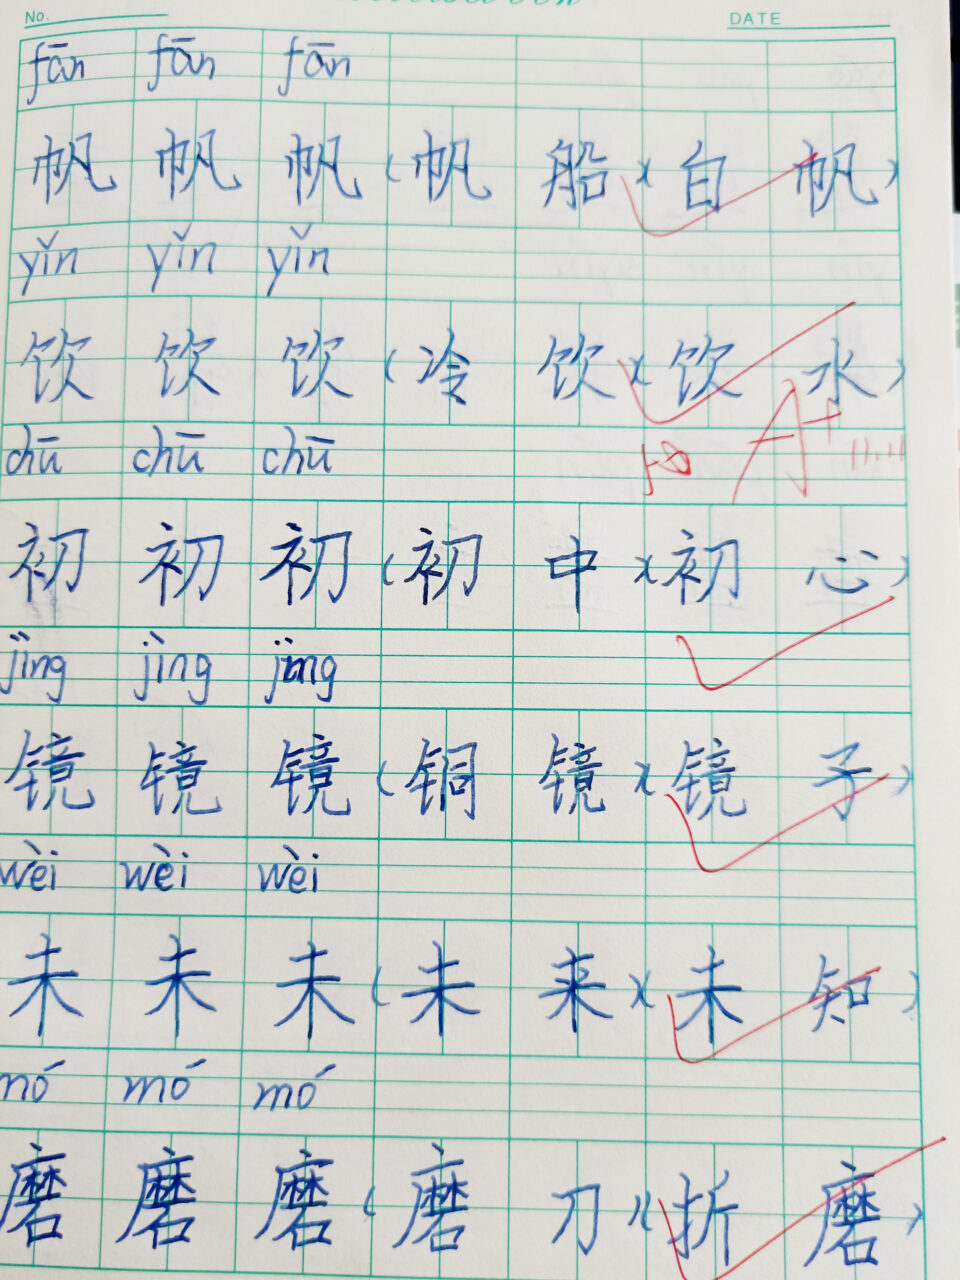 No. DATE
fān fān fān
帆 帆 帆 (帆 船)(白 帆)
yǐn yǐn yǐn
饮 饮 饮 (冷 饮)(饮 水)
chū chū chū
A+ 11.11
初 初 初 (初 中)(初 心)
jìng jìng jìng
镜 镜 镜 (铜 镜)(镜 子)
wèi wèi wèi
未 未 未 (未 来)(未 知)
mó mó mó
磨 磨 磨 (磨 刀)(折 磨)